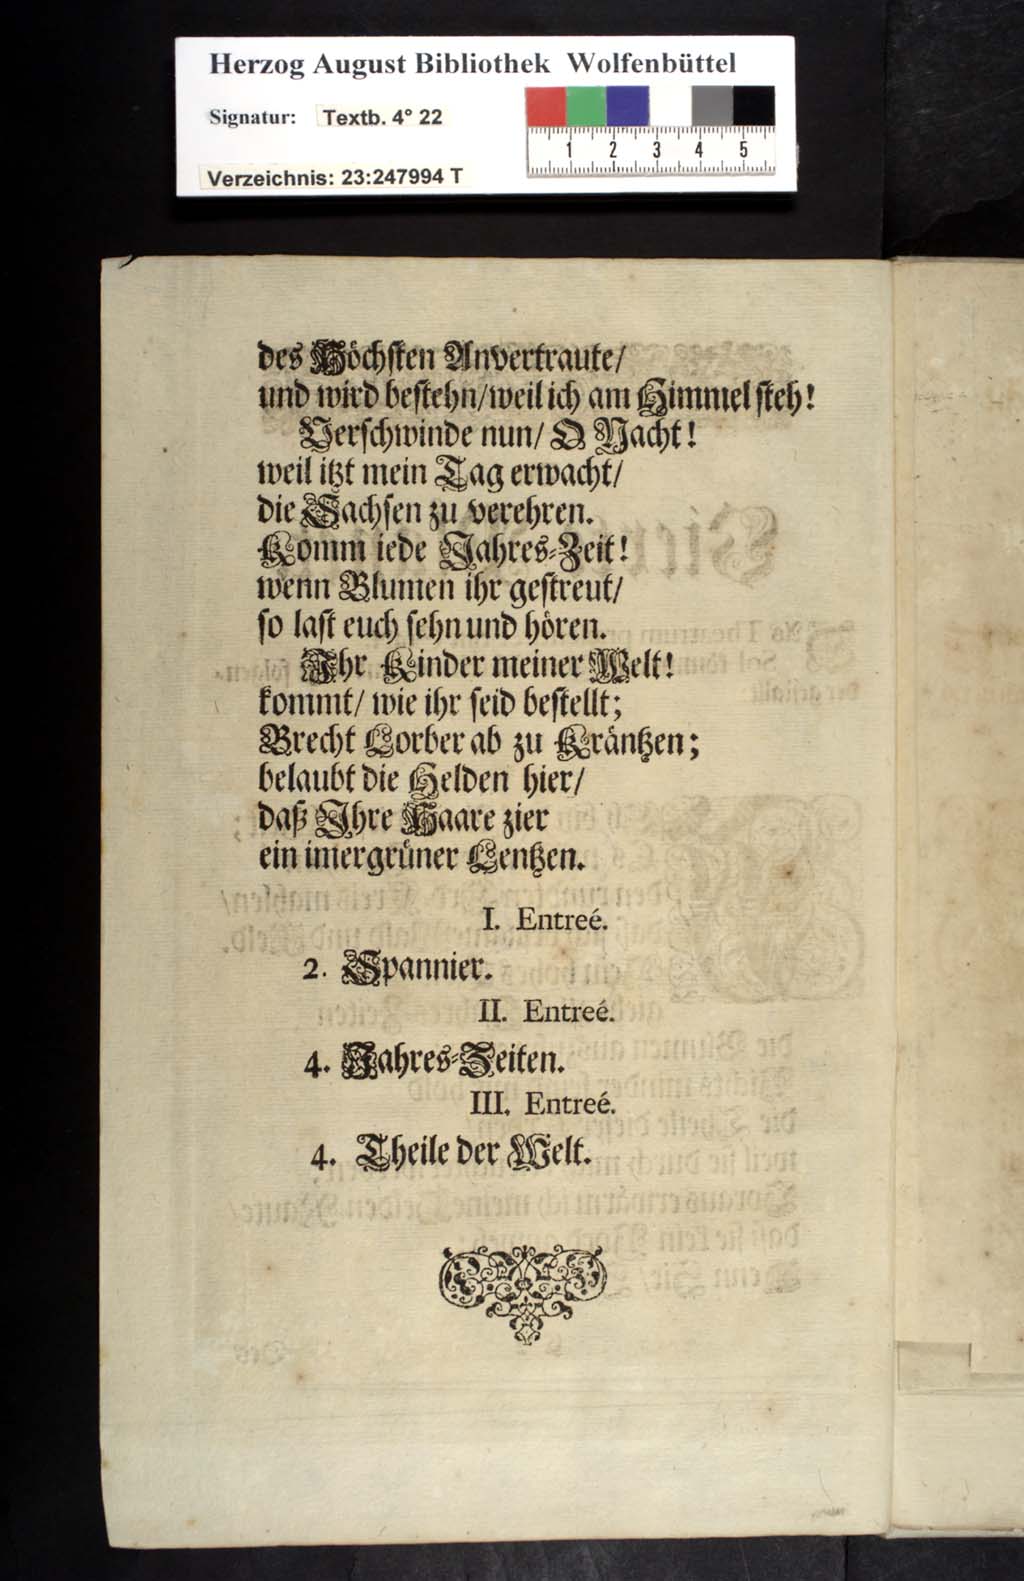 Herzog August Bibliothek Wolfenbüttel
Signatur: Textb. 4° 22
1 2 3 4 5
Verzeichnis: 23:247994 T
des Höchsten Anvertraute/
und wird bestehn/weil ich am Himmel steh!
Verschwinde nun/ O Nacht!
weil itzt mein Tag erwacht/
die Sachsen zu verehren.
Komm iede Jahres-Zeit!
wenn Blumen ihr gestreut/
so last euch sehn und hören.
Ihr Kinder meiner Welt!
kommt/ wie ihr seid bestellt;
Brecht Lorber ab zu Kräntzen;
belaubt die Helden hier/
daß Ihre Haare zier
ein im̃ergrüner Lentzen.
I. Entreé.
2. Spannier.
II. Entreé.
4. Jahres-Zeiten.
III. Entreé.
4. Theile der Welt.